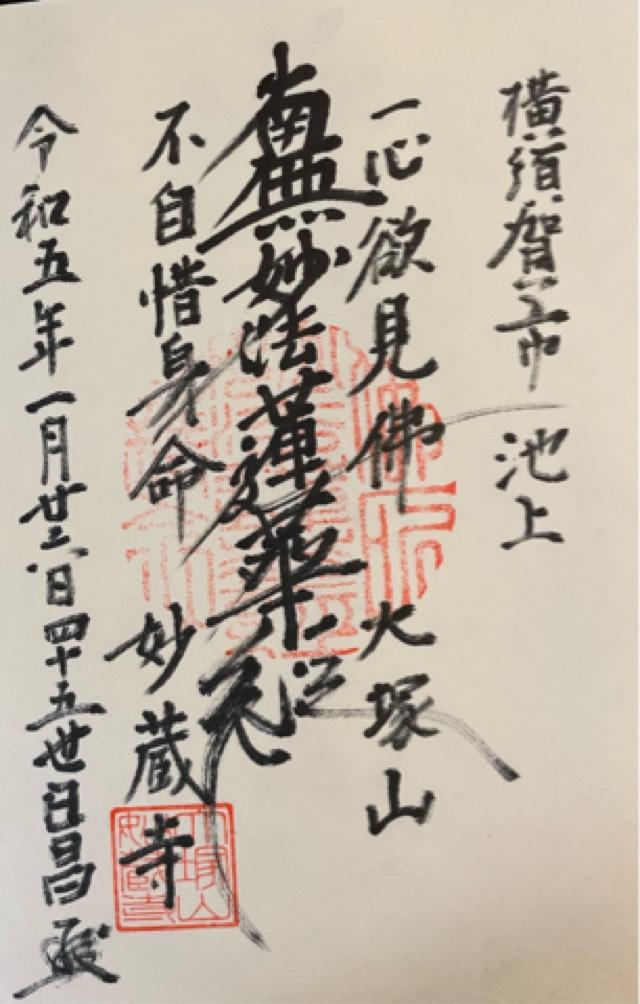 横須賀市 池上
一心欲見佛 大塚山
南無妙法蓮華經
不自惜身命 妙蔵寺
令和五年一月廿六日四十五世日昌
大塚山
妙蔵寺